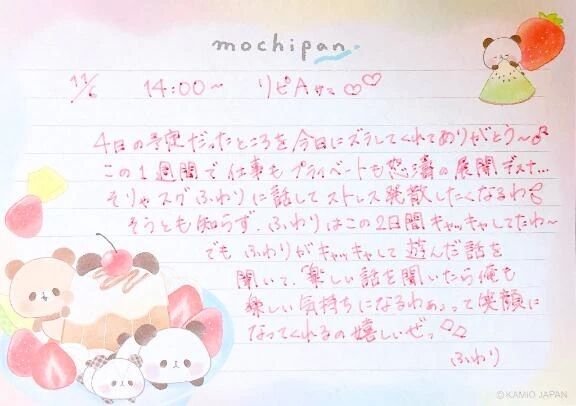 mochipan.
11/6 14:00~ リピAサマ♡♡
4日の予定だったところを今日にズラしてくれてありがとう~♪
この1週間で仕事もプライベートも怒濤の展開デスナ...
そりゃスグふわりに話してストレス発散したくなるわ
そうとも知らず、ふわりはこの2日間キャッキャしてたわ~
でもふわりがキャッキャして遊んだ話を
聞いて、楽しい話を聞いたら俺も
楽しい気持ちになるわぁって笑顔に
なってくれるの嬉しいぜっ♡♡
ふわり
©KAMIO JAPAN